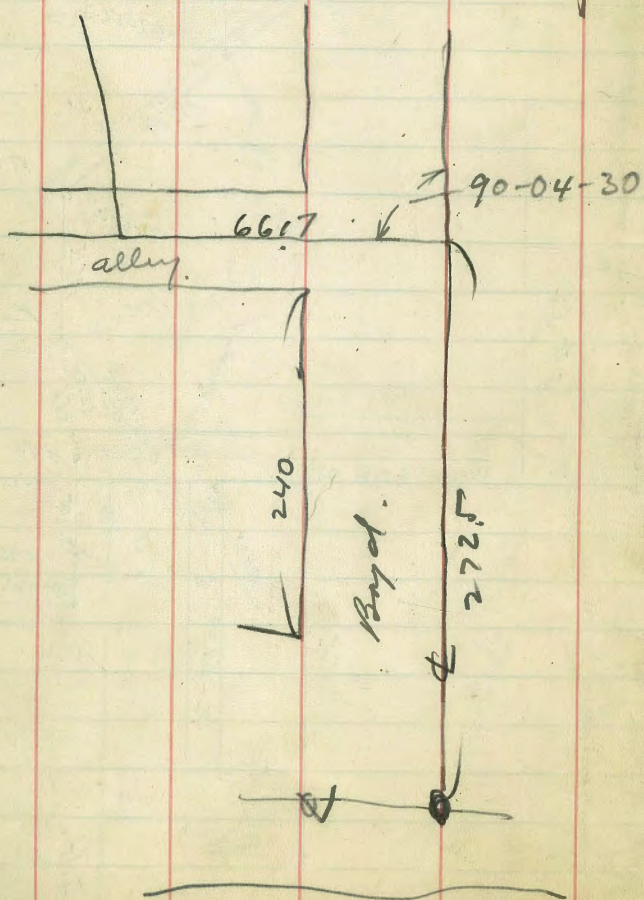 90-04-30
6617
alley.
240
Boyd.
272.5